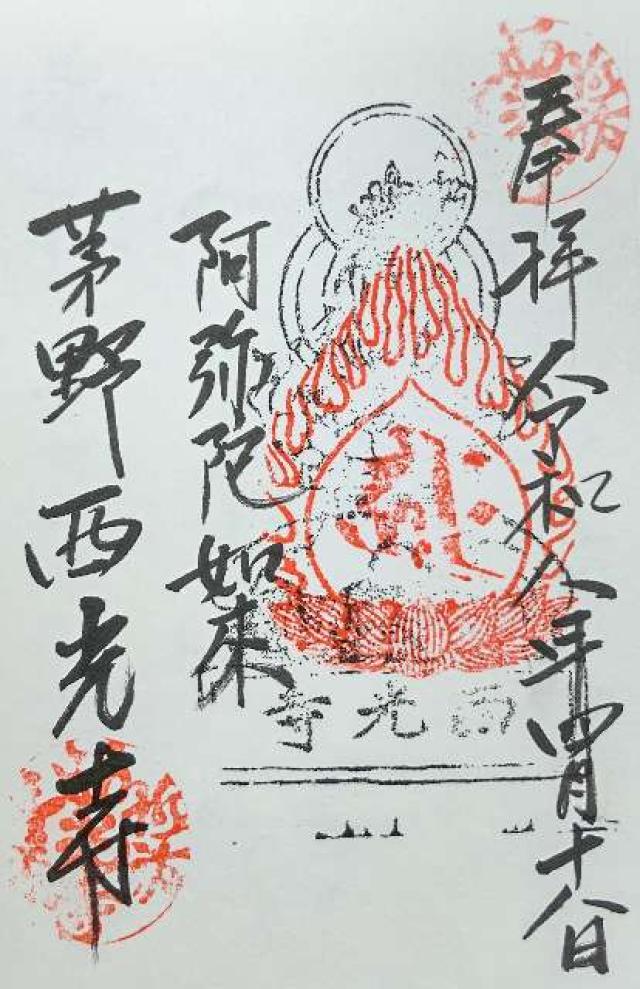 奉拝 令和八年四月十八日
阿弥陀如来
茅野西光寺
西光寺